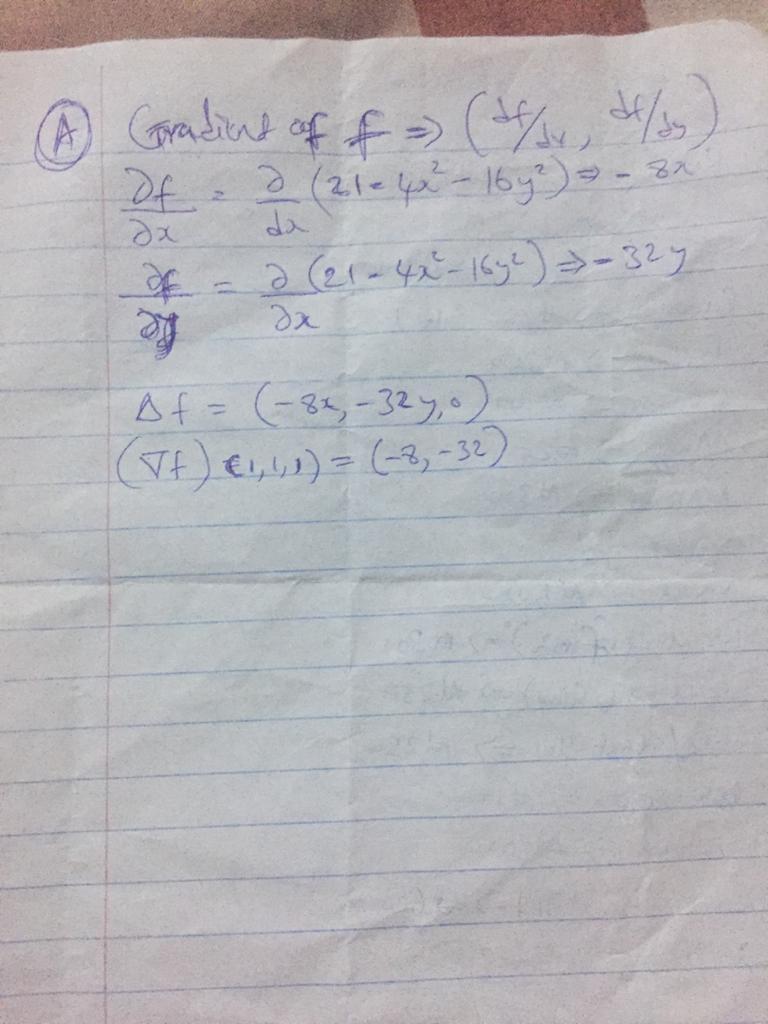 (A) Gradient of f ⇒ (df/dx, df/dy)
∂f/∂x = ∂/dx (21 - 4x² - 16y²) ⇒ - 8x
∂f/∂y = ∂/∂x (21 - 4x² - 16y²) ⇒ - 32y
Δf = (-8x, -32y, 0)
(∇f) (1,1,1) = (-8, -32)